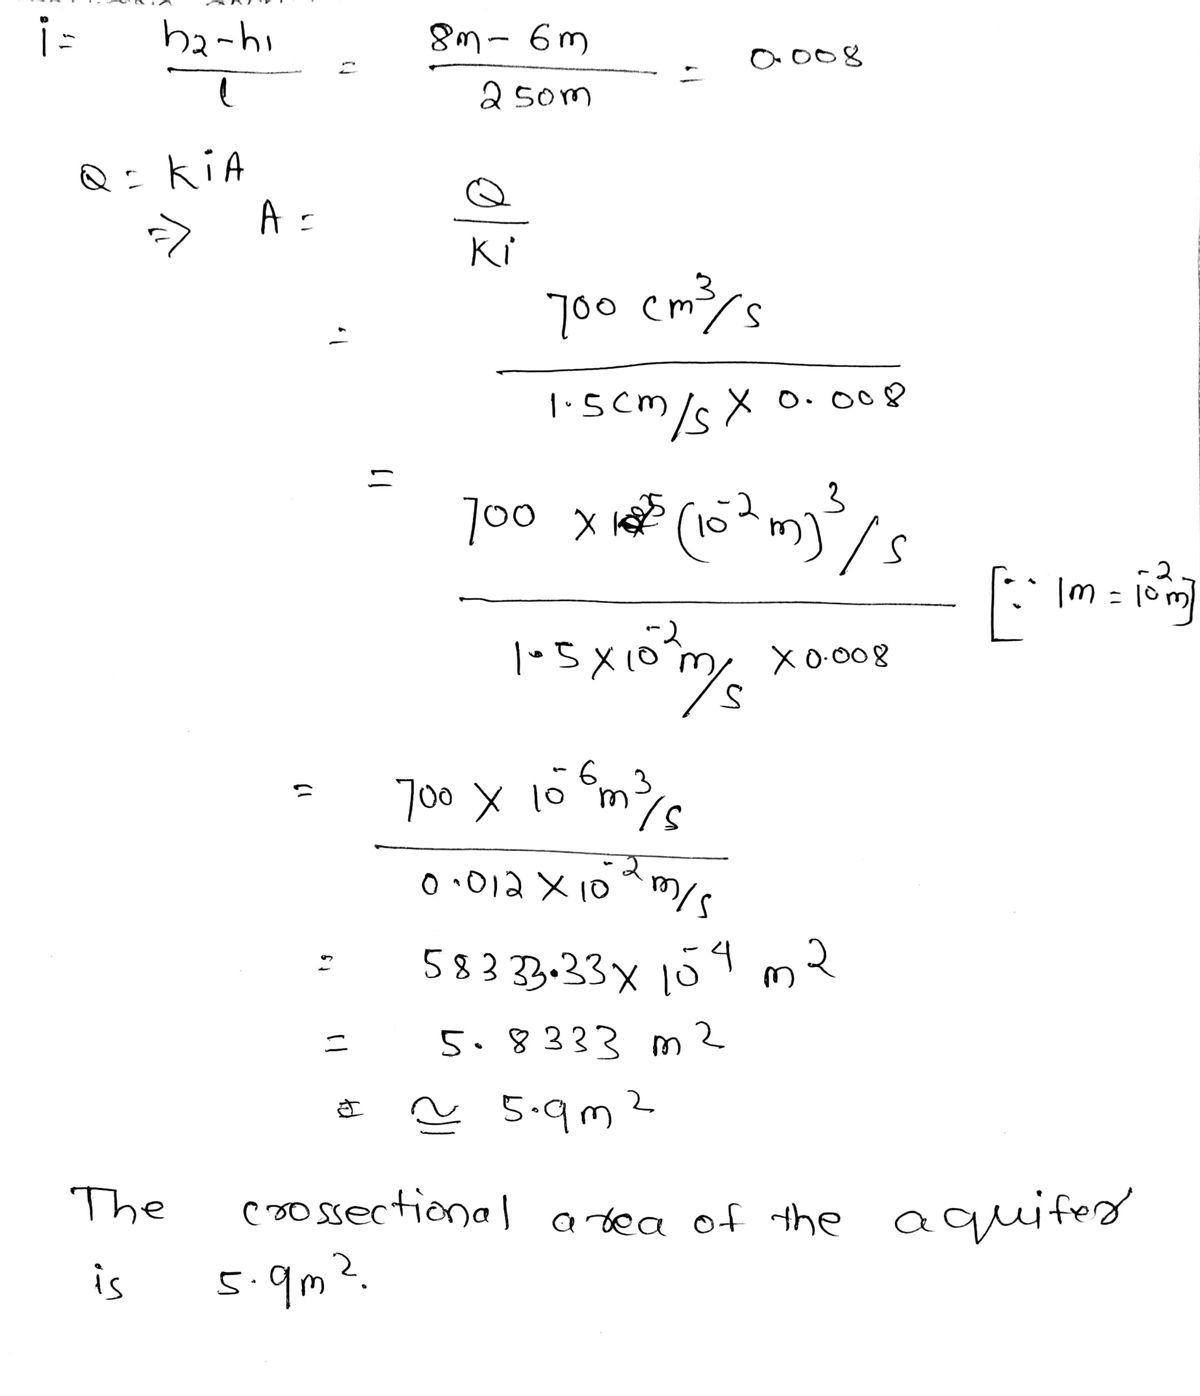 i = h2-h1 / l = 8m - 6m / 250m = 0.008
Q = KiA
⇒ A = Q / Ki
= 700 cm³/s / 1.5cm/s × 0.008
= 700 × (10⁻² m)³/s / 1.5×10⁻²m/s ×0.008 [∵ 1m = 10⁻²m]
= 700 × 10⁻⁶m³/s / 0.012×10⁻²m/s
= 58333.33× 10⁻⁴ m²
= 5.8333 m²
≅ 5.9m²
The crossectional area of the aquifer
is 5.9m².